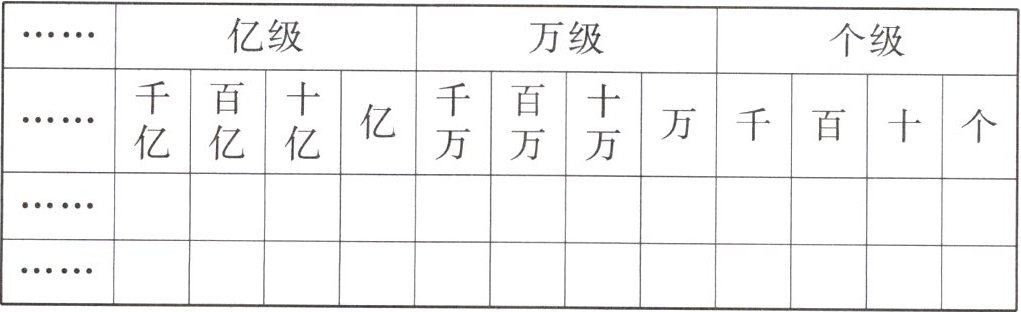 …… 亿级 万级 个级
…… 千亿 百亿 十亿 亿 千万 百万 十万 万 千 百 十 个
……
……